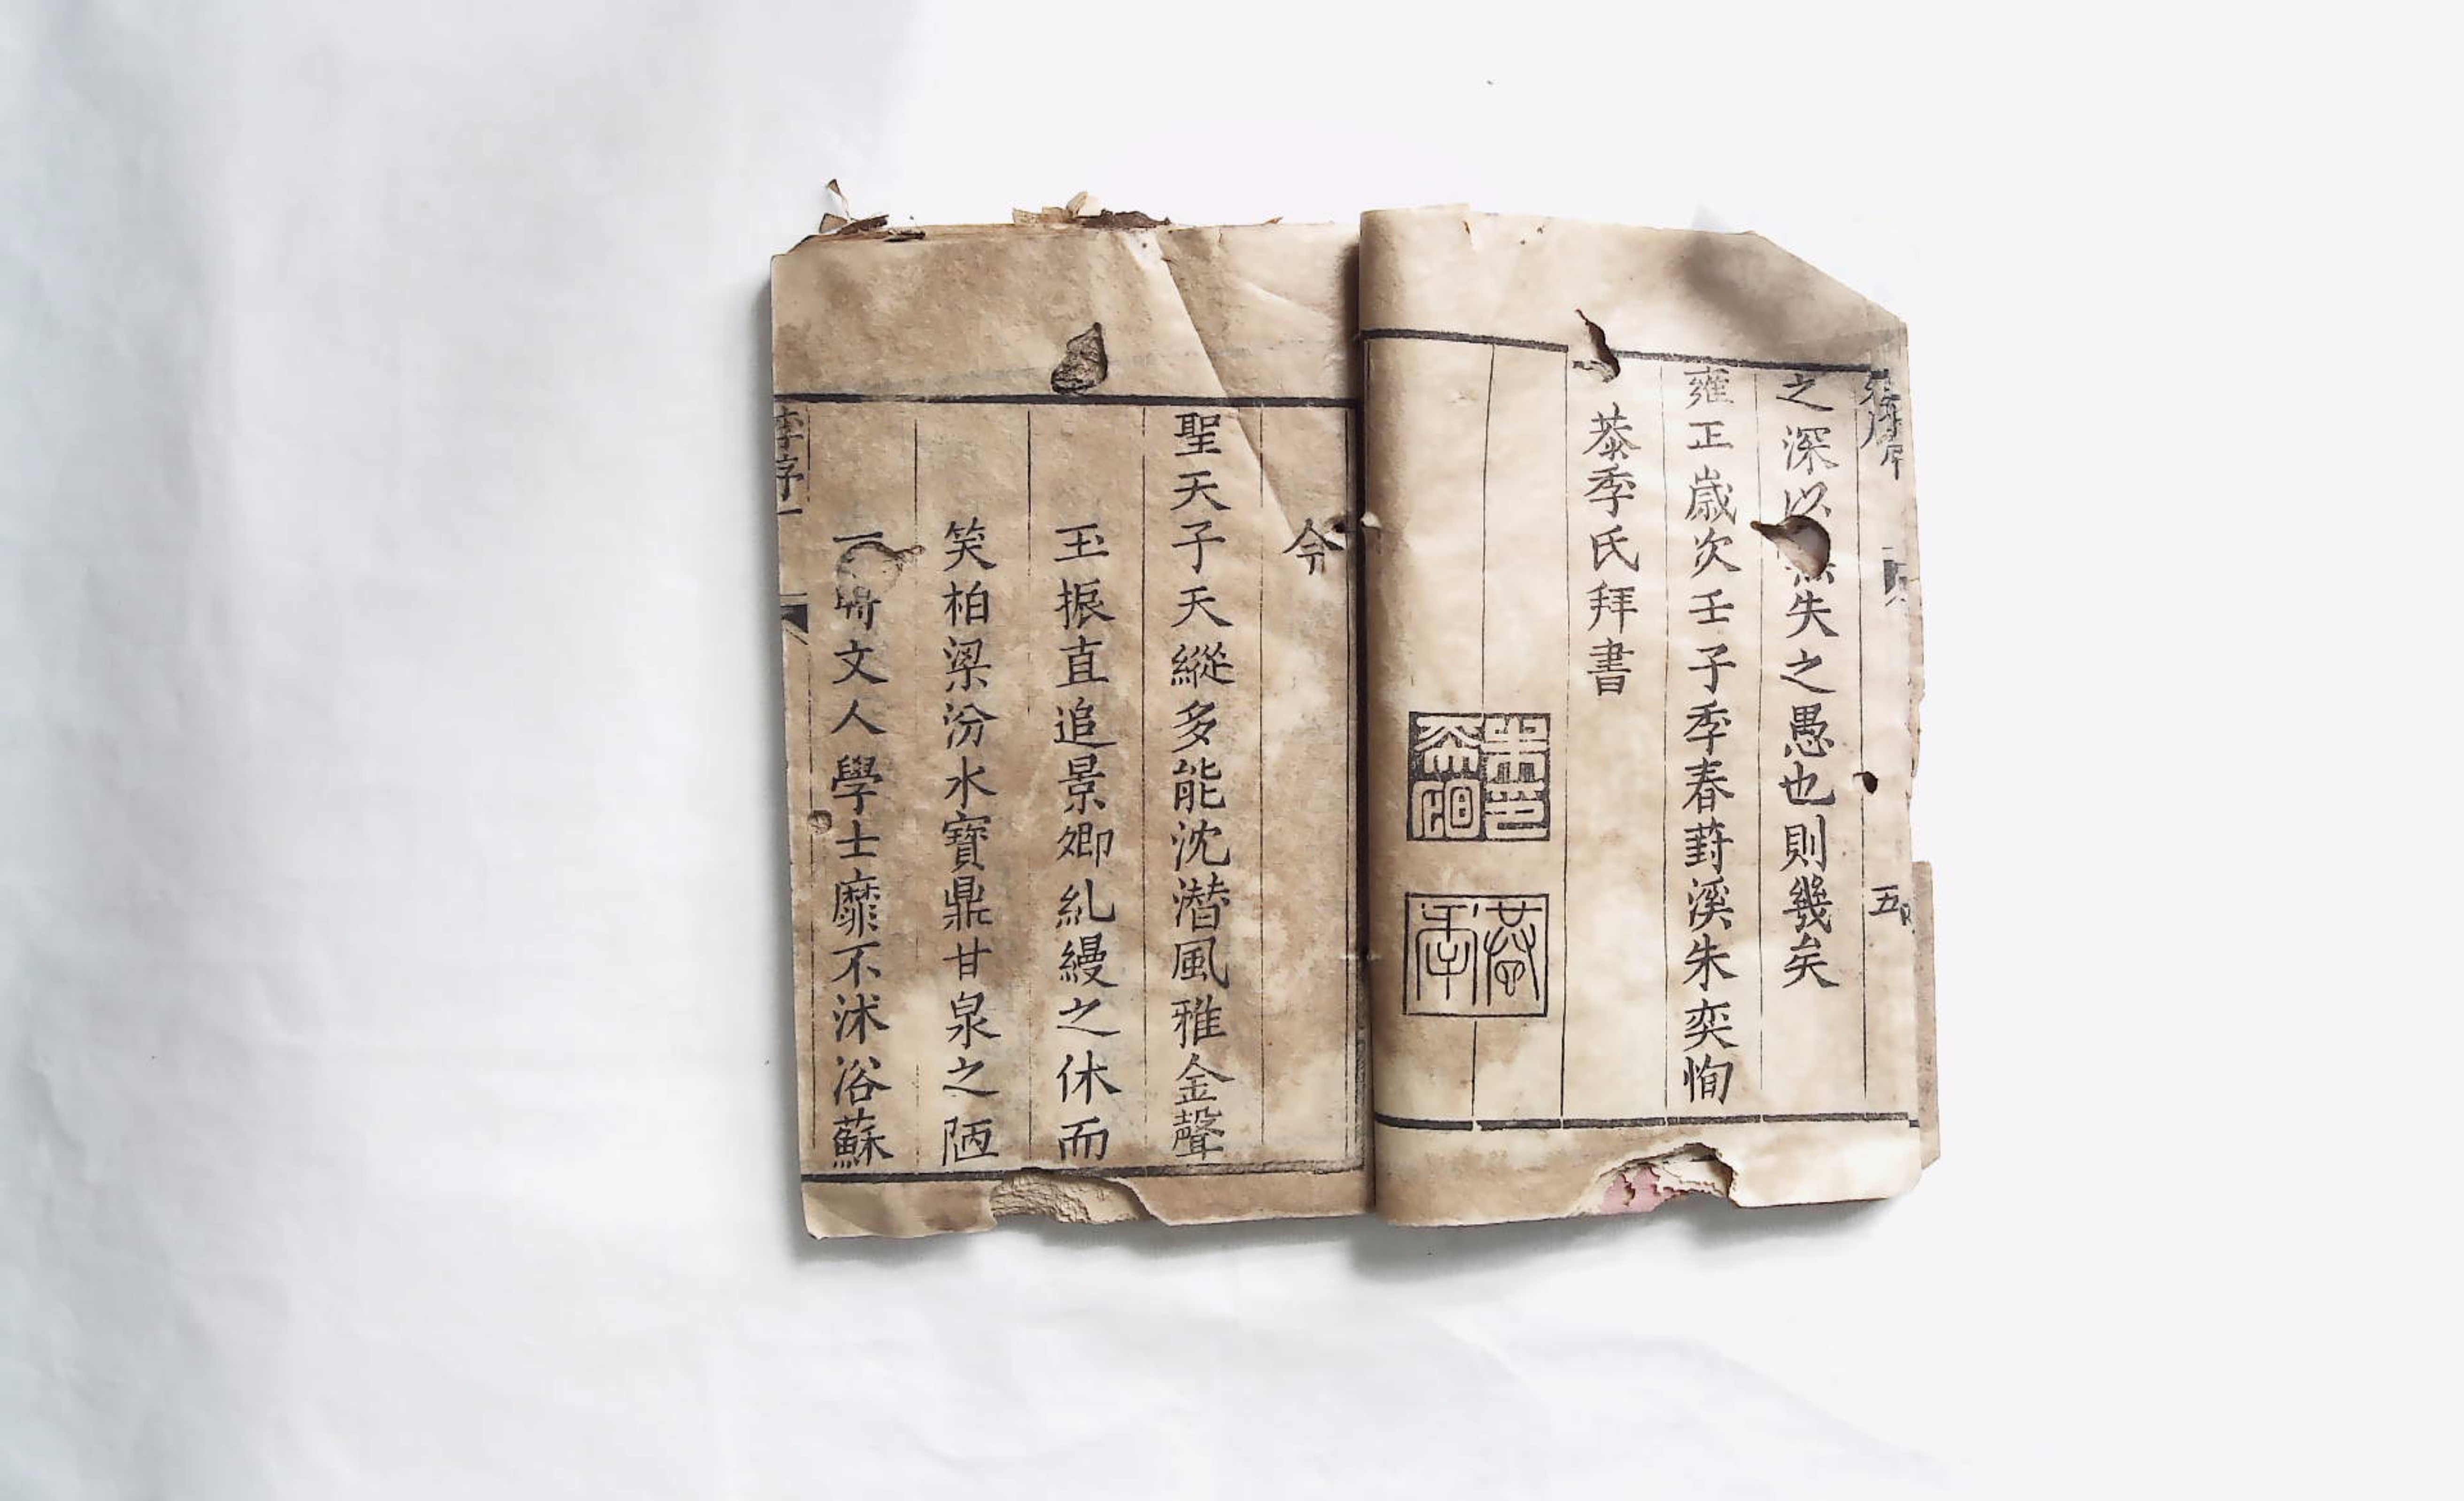 之深以失之愚也則幾矣
雍正歲次壬子季春葑溪朱奕恂
恭季氏拜書
朱印奕恂
恭季
今
聖天子天縱多能沈潛風雅金聲
玉振直追景卿糺縵之休而
笑柏梁汾水寶鼎甘泉之陋
一時文人學士靡不沐浴蘇
李序一
五